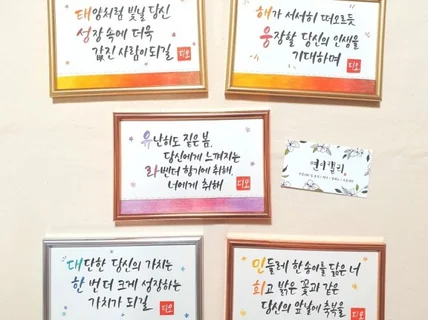 태양처럼 빛날 당신
성장 속에 더욱
값진 사람이 되길
디오
해가 서서히 떠오르듯
웅장할 당신의 인생을
기대하며
디오
유난히도 짙은 봄,
당신에게 느껴지는
라벤더 향기에 취해,
너에게 취해
디오
연이캘리
대단한 당신의 가치는
한 번 더 크게 성장하는
가치가 되길
디오
민들레 한 송이를 닮은 너
희고 밝은 꽃과 같은
당신의 앞날에 축복을
디오